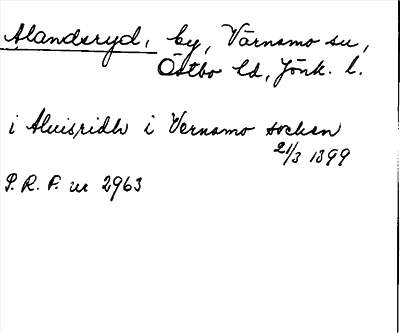 Alandsryd, by, Värnamo sn,
Östbo hd, Jönk. l.
i Aluisridh i Vernamo socken
21/3 1399
P.R.F. nr 2963